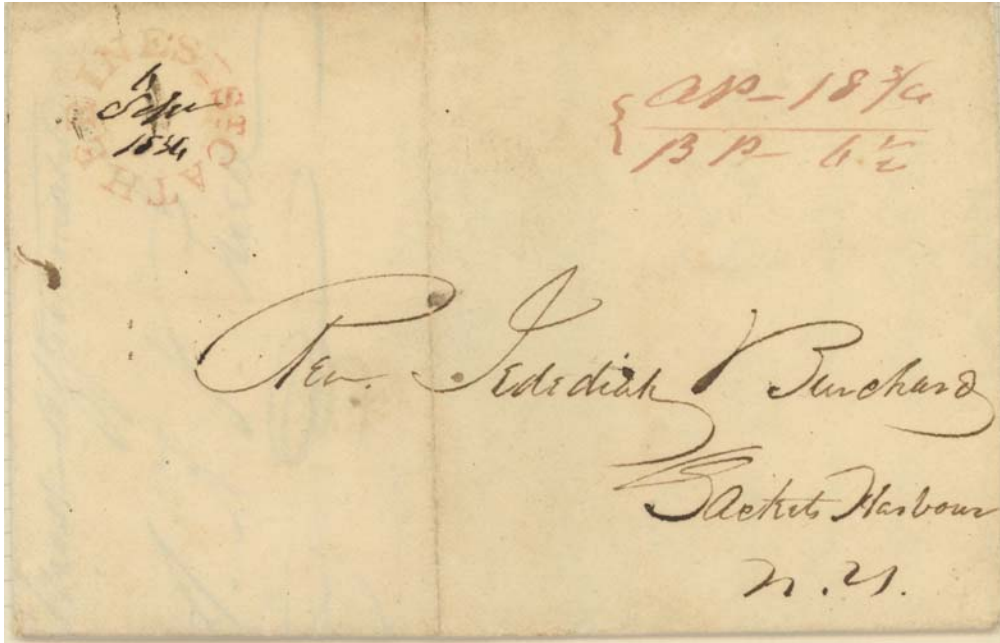 ST CATHERINES
Sepr
1836
AP - 18 3/4
BP - 4 1/2
Rev. Jedediah Burchard
Sackets Harbour
N. Y.